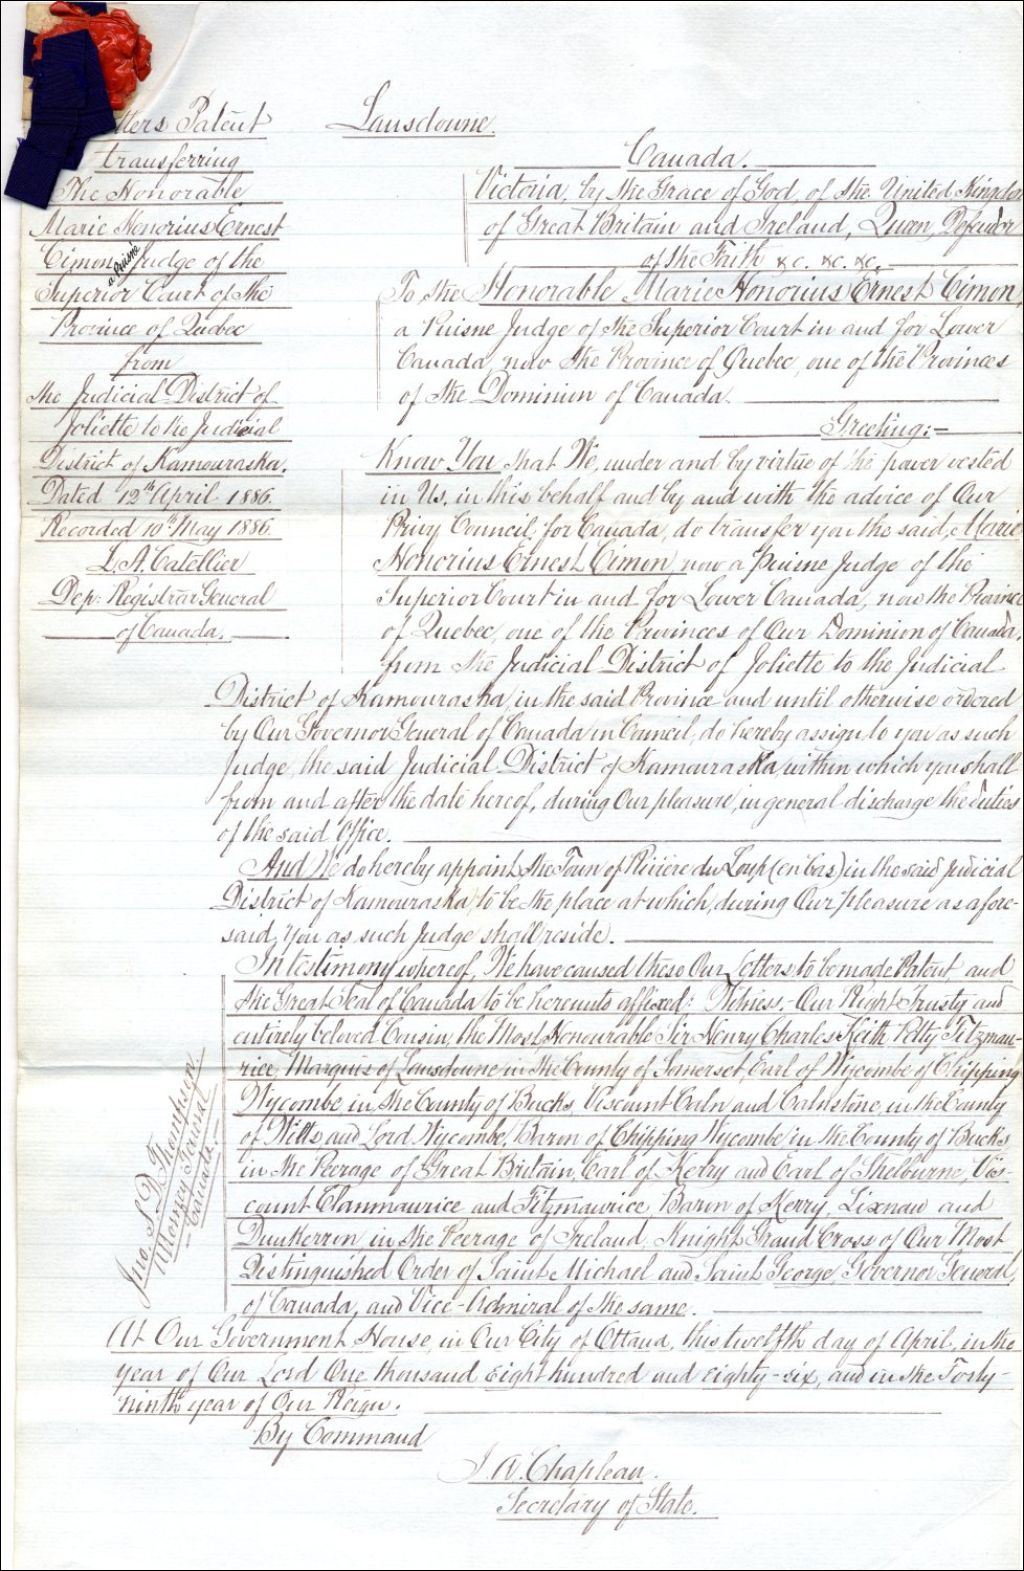 Letters Patent
transferring
The Honorable
Marie Honorius Ernest
Cimon a Puisné Judge of the
Superior Court of the
Province of Quebec
from
the Judicial District of
Joliette to the Judicial
District of Kamouraska.
Dated 12th April 1886.
Recorded 10th May 1886.
L. A. Catellier
Dep: Registrar General
of Canada.
Lansdowne.
Canada.
Victoria, by the Grace of God, of the United Kingdom
of Great Britain and Ireland, Queen, Defender
of the Faith &c. &c. &c.
To the Honorable Marie Honorius Ernest Cimon,
a Puisne Judge of the Superior Court in and for Lower
Canada, now the Province of Quebec, one of the Provinces
of the Dominion of Canada.
Greeting:-
Know You that We, under and by virtue of the power vested
in Us, in this behalf and by and with the advice of Our
Privy Council, for Canada, do transfer you the said, Marie
Honorius Ernest Cimon now a puisne Judge of the
Superior Court in and for Lower Canada, now the Province
of Quebec, one of the Provinces of Our Dominion of Canada,
from the Judicial District of Joliette to the Judicial
District of Kamouraska, in the said Province and until otherwise ordered
by Our Governor General of Canada in Council, do hereby assign to you as such
Judge, the said Judicial District of Kamouraska, within which you shall
from and after the date hereof, during Our pleasure, in general discharge the duties
of the said Office.
And We do hereby appoint the Town of Rivière du Loup (en bas) in the said Judicial
District of Kamouraska, to be the place at which, during Our pleasure as afore-
said, You as such Judge shall reside.
In testimony whereof, We have caused these Our Letters to be made Patent, and
the Great Seal of Canada to be hereunto affixed: Witness,- Our Right Trusty and
entirely beloved Cousin, the Most Honourable Sir Henry Charles Keith Petty Fitzmau-
rice, Marquis of Lansdowne in the County of Somerset, Earl of Wycombe of Chipping
Wycombe in the County of Bucks, Viscount Caln and Calnstone, in the County
of Wilts and Lord Wycombe, Baron of Chipping Wycombe, in the County of Bucks
in the Peerage of Great Britain, Earl of Kerry and Earl of Shelburne, Vis-
count Clanmaurice and Fitzmaurice, Baron of Kerry, Lixnaw and
Dunkerron in the Peerage of Ireland, Knight Grand Cross of Our Most
Distinguished Order of Saint Michael and Saint George, Governor General,
of Canada, and Vice-Admiral of the same.
Jno. S. D. Thompson
Attorney General
Canada.-
At Our Government House, in Our City of Ottawa, this twelfth day of April, in the
year of Our Lord One thousand eight hundred and eighty-six, and in the Forty-
ninth year of Our Reign.
By Command
J. A. Chapleau.
Secretary of State.